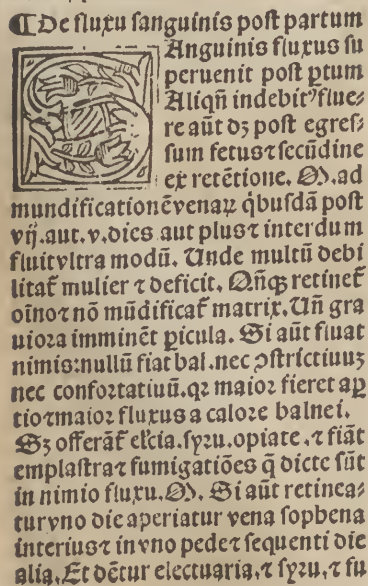 ¶De fluxu sanguinis post partum
SAnguinis fluxus su
peruenit post ꝑtum
Aliqñ indebitꝰ flue⸗
re aũt dꝫ post egres⸗
sum fetus ⁊ secũdine
ex retẽtione. M. ad
mundificationẽ venaꝝ qͥbusdã post
vij. aut. v. dies aut plus ⁊ interdum
fluit vltra modũ. Unde multũ debi
litat᷒ mulier ⁊ deficit. Qñqꝫ retinet᷒
oĩno ⁊ nõ mũdificat᷒ matrix. Uñ gra
uiora imminẽt ꝑicula. Si aũt fluat
nimis: nullũ fiat bal. nec ꝯstrictiuuꝫ
nec confortatiuũ. qꝛ maior fieret aꝑ
tio ⁊ maior fluxus a calore balnei.
Sꝫ offerãt᷒ elcia. syru. opiate. ⁊ fiãt
emplastra ⁊ fumigatiões q̃ dicte sũt
in nimio fluxu. M. Si aũt retinea⸗
tur vno die aperiatur vena sophena
interius ⁊ in vno pede ⁊ sequenti die
alia. Et dẽtur electuaria. ⁊ syru. ⁊ fu